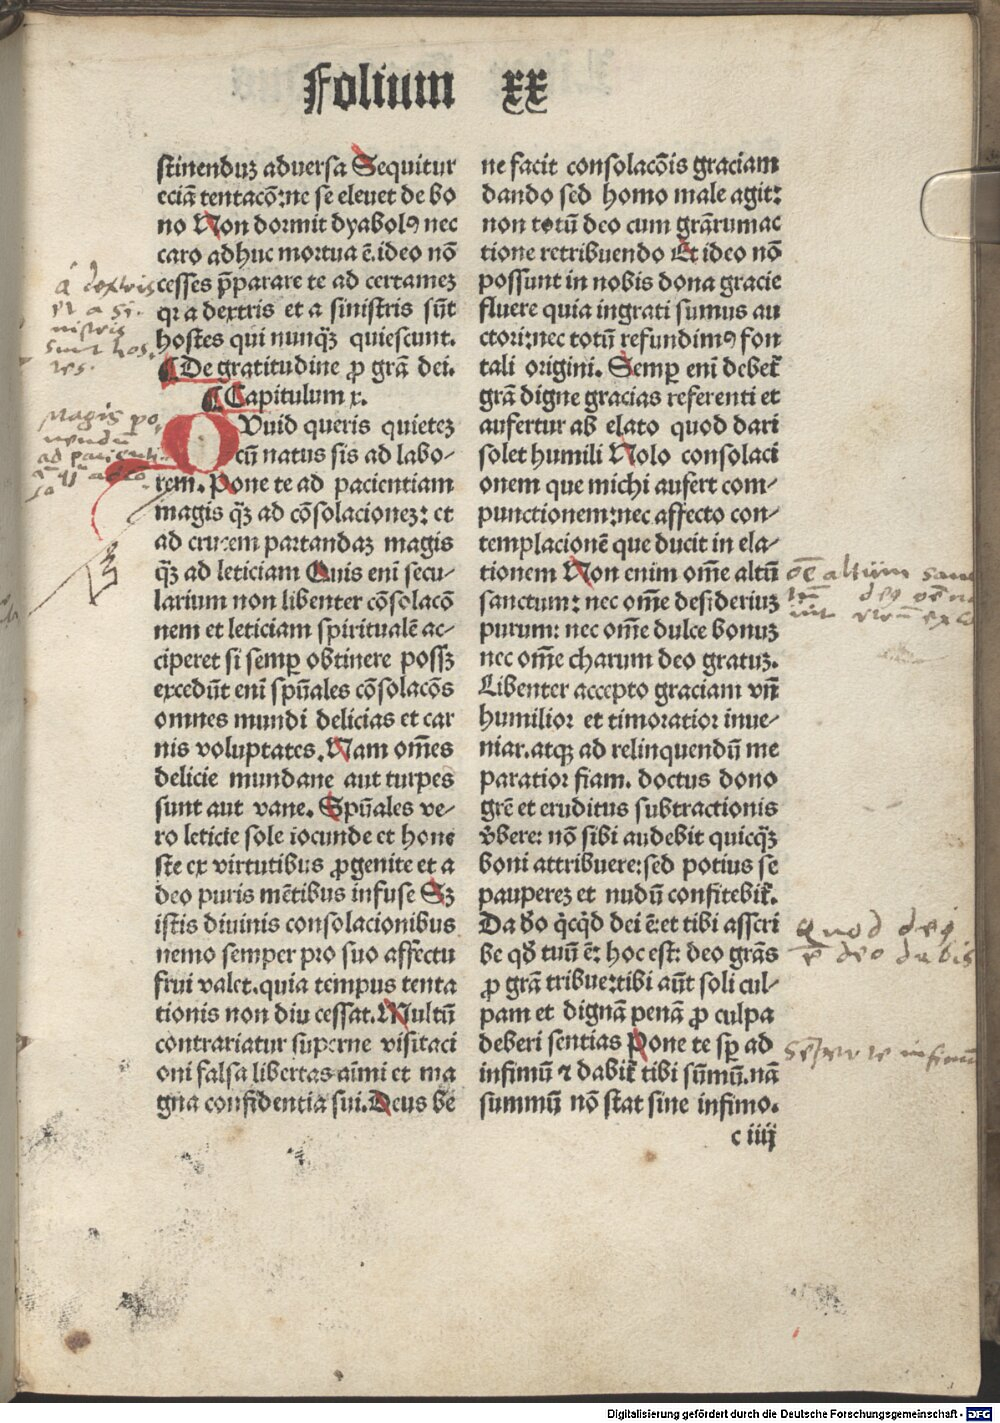 Folium xx
stinenduꝫ aduersa Sequitur
eciã tentacõ:ne se eleuet de bo
no Non dormit dyabolꝰ nec
caro adhuc mortua ē.ideo nõ
cesses p̃parare te ad certameꝫ
qꝛ a dextris et a sinistris sũt
hostes qui nunqꝫ̃ quiescunt.
¶De gratitudine ꝓ grã dei.
¶Capitulum x.
QVuid queris quieteꝫ
cũ natus sis ad labo-
rem. Pone te ad pacientiam
magis qꝫ̃ ad cõsolacioneꝫ: et
ad crucem partandaꝫ magis
qꝫ̃ ad leticiam Quis enĩ secu-
larium non libenter cõsolacõ
nem et leticiam spiritualẽ ac-
ciperet si semꝑ obtinere possꝫ
excedũt enĩ spũales cõsolacõs
omnes mundi delicias et car
nis voluptates. Nam om̃es
delicie mundane aut turpes
sunt aut vane. Spũales ve-
ro leticie sole iocunde et hone
ste ex virtutibus ꝓgenite et a
deo puris mẽtibus infuse Sꝫ
istis diuinis consolacionibus
nemo semper pro suo affectu
frui valet.quia tempus tenta
tionis non diu cessat. Multũ
contrariatur superne visitaci
oni falsa libertas aĩmi et ma
gna confidentia sui. Deus be
ne facit consolacõis graciam
dando sed homo male agit:
non totũ deo cum grãrumac
tione retribuendo Et ideo nõ
possunt in nobis dona gracie
fluere quia ingrati sumus au
ctori:nec totũ refundimꝰ fon
tali origini. Semꝑ enĩ debet̃
grã digne gracias referenti et
aufertur ab elato quod dari
solet humili Nolo consolaci
onem que michi aufert com-
punctionem:nec affecto con-
templacionẽ que ducit in ela-
tionem Non enim om̃e altũ
sanctum: nec om̃e desideriuꝫ
purum: nec om̃e dulce bonuꝫ
nec om̃e charum deo gratuꝫ.
Libenter accepto graciam vñ
humilior et timoratior inue-
niar.atqꝫ ad relinquendũ me
paratior fiam. doctus dono
grẽ et eruditus subtractionis
v̾bere: nõ sibi audebit quicqꝫ̃
boni attribuere:sed potius se
paupereꝫ et nudũ confitebit̃.
Da deo q̇cq̇d dei ē:et tibi asscri
be qđ tuũ ē: hoc est: deo grãs
ꝓ grã tribue:tibi aũt soli cul-
pam et dignã penã ꝓ culpa
deberi sentias Pone te sꝑ ad
infimũ ⁊ dabit̃ tibi sũmũ.nã
summũ nõ stat sine infimo.
c iiij
a dextris
et a si-
nistris
sunt hos
tes.
Magis po
nendũ
oẽ altũm sanc
Quod dei
ē deo dabis
Digitalisierung gefördert durch die Deutsche Forschungsgemeinschaft - DFG